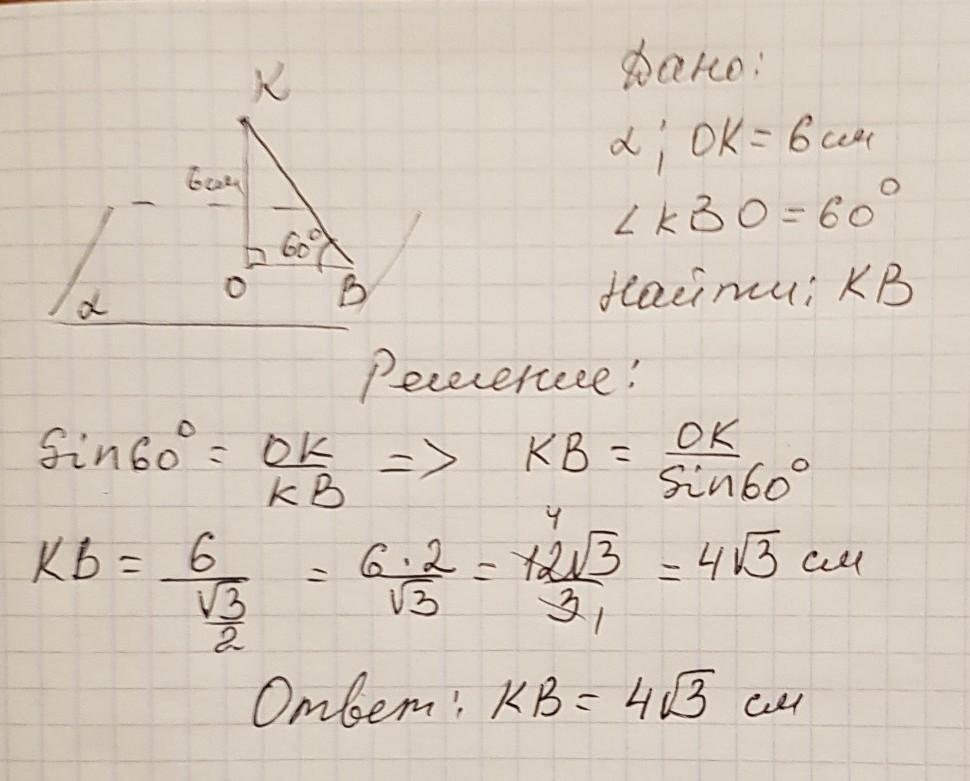 K
6см
60°
O
B
α
Дано:
α; OK = 6 см
∠KBO = 60°
Найти: KB
Решение:
Sin60° = OK/KB => KB = OK/Sin60°
KB = 6/(√3/2) = 6·2/√3 = 12√3/3 = 4√3 см
4
1
Ответ: KB = 4√3 см